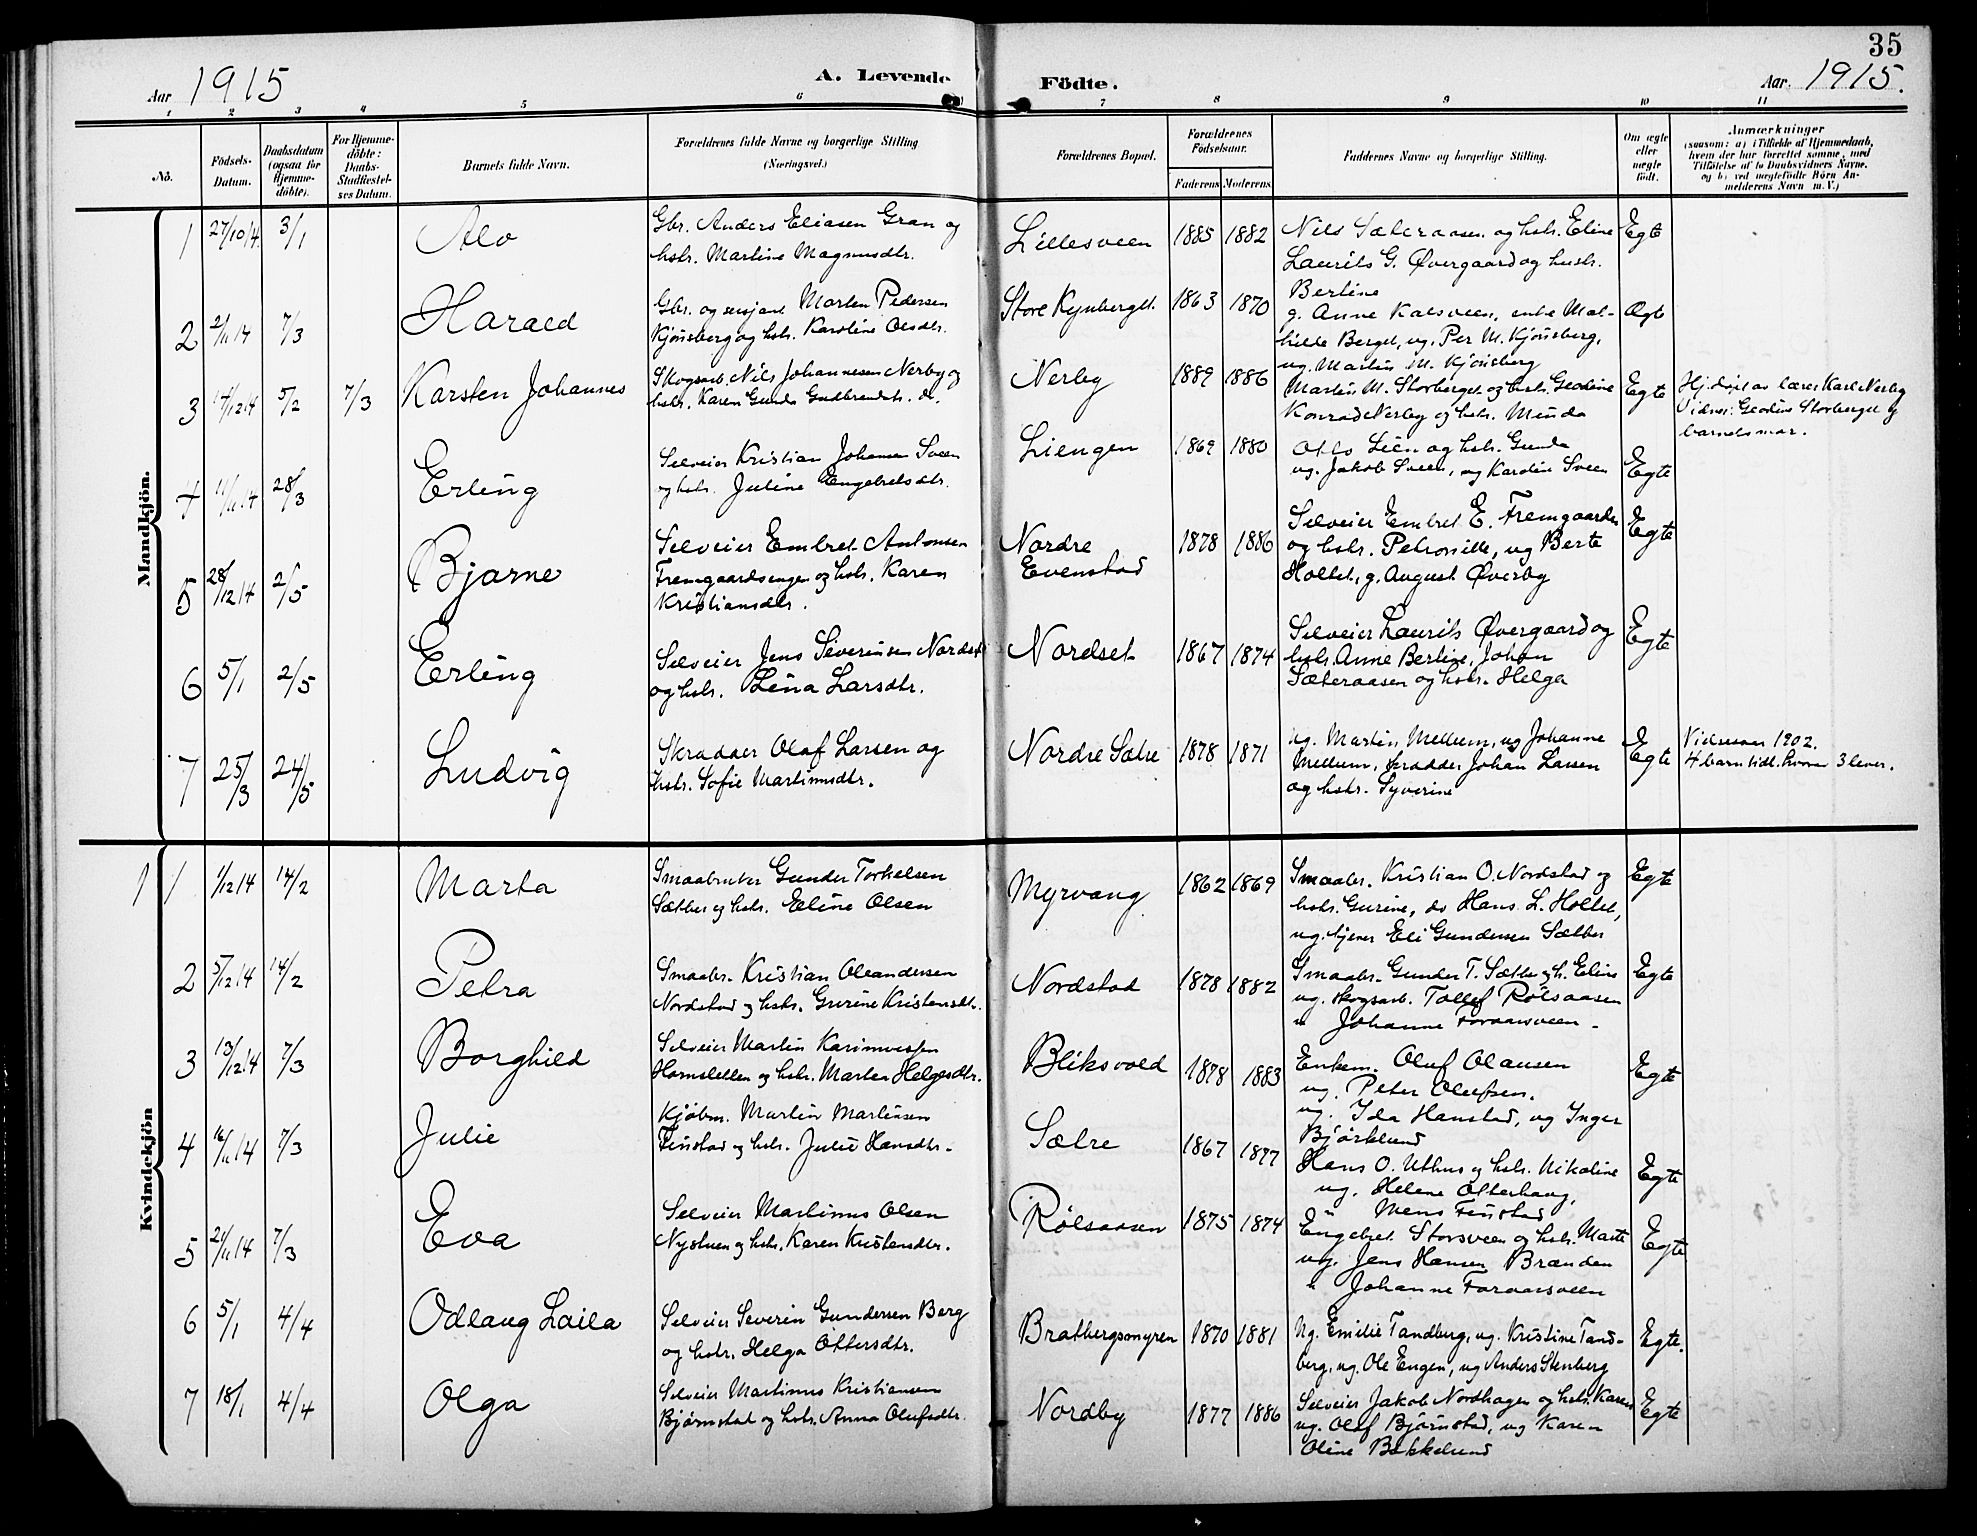 35
Aar 1915
A. Levende Födte.
Aar. 1915.
1 2 3 4 5 6 7 8 9 10 11
No.
Födsels-
Datum.
Daabsdatum
(ogsaa for
Hjemme-
döbte).
For Hjemme-
döbte:
Daabs-
Stadfæstel-
ses Datum.
Barnets fulde Navn.
Forældrenes fulde Navne og borgerlige Stilling
(Næringsvei.)
Forældrenes Bopæl.
Forældrenes
Födselsaar.
Faderens Moderens
Faddernes Navne og borgerlige Stilling.
Om ægte
eller
uægte
født.
Anmærkninger
(saasom: a) i Tilfælde af Hjemmedaab,
hvem der har forrettet samme, med
Tilföielse af to Daabsvidners Navne,
og b) ved uegtefödte Börn An-
melderens Navn m. V.)
Mandkjön.
1 27/10 14. 3/1 Alv
Gbr. Anders Eliasen Gran og
hstr. Martine Magnusdtr.
Lillesveen 1885 1882
Nils Sæteraasen og hstr. Eline
Laurits G. Øvergaard og hustr.
Bertine
Egte
2 2/11 14 7/3 Harald
Gbr. og sersjant Morten Pedersen
Kjønsberg og hstr. Karoline Olsdtr.
Store Kynberget. 1863 1870
g. Anne Kalsveen, enke Mat-
hilde Berget, ug. Per M. Kjønsberg,
ug. Martin M. Kjønsberg
Ægte
3 14/12 14 5/2 7/3 Karsten Johannes
Skogsarb. Nils Johannesen Nerby og
hstr. Karen Gunda Gudbrandst. dr.
Nerby 1889 1886
Martin M. Storberget og hstr. Geodine
Konrad Nerby og hstr. Minda
Egte
Hj. døpt av lærer Karl Nerby
Vidner: Geodine Storberget og
barnets mor.
4 11/11 14 28/3 Erling
Selveier Kristian Johansen Sveen
og hstr. Juline Engebretsdtr.
Liengen 1869 1880
Otto Lien og hstr. Gunda
ug. Jakob Sveen, ug Karoline Sveen
Egte
5 28/12 14 2/5 Bjarne
Selveier Embret Antonsen
Fremgaardsengen og hstr. Karen
Kristiansdtr.
Nordre
Evenstad
1878 1886
Selveier Embret E. Fremgaarden
og hstr. Petronille, ug Berte
Holtet, g. August Øverby
Egte
6 5/1 2/5 Erling
Selveier Jens Severinsen Nordset
og hstr. Lina Larsdtr.
Nordset 1867 1874
Selveier Laurits Øvergaard og
hstr. Anne Bertine, Johan
Sæteraasen og hstr. Helga
Egte
7 25/3 24/5 Ludvig
Skrædder Olaf Larsen og
hstr. Sofie Martinusdtr.
Nordre Sætre 1878 1871
ug. Martin Mellum, ug Johanne
Mellum, skrædder Johan Larsen
og hstr. Syverine
Egte
Vielsesaar 1902.
4 barn tidl. hvorav 3 lever.
Kvindekjön
1 1 1/12 14 14/2 Marta
Smaabruker Gunder Torkelsen
Sætber og hstr. Eline Olsen
Myrvang 1862 1869
Smaabr. Kristian O. Nordstad og
hstr. Gurine, do Hans L. Holtet,
ug. tjener Eli Gundersen Sætber
Egte
2 5/12 14 14/2 Petra
Smaabr. Kristian Oleandersen
Nordstad og hstr. Gurine Kristensdtr.
Nordstad 1878 1882
Smaabr. Gunder T. Sætbe og h. Eline
ug. skogsarb. Tollef Rølsaasen
" Johanne Foraarsveen.
Egte
3 13/12 14 7/3 Borghild
Selveier Martin Karinussen
Hornsletten og hstr. Marte Helgesdtr.
Bliksvold 1878 1883
Enkem. Oluf Olausen
ug. Peter Olufsen.
ug. Ida Hanstad, ug Inger
Bjørklund
Egte
4 16/11 14 7/3 Julie
Kjøbm. Martin Martinsen
Finstad og hstr. Julie Hansdtr.
Sætre 1867 1877
Hans O. Uthus og hstr. Nikoline
ug. Helene Otterhaug,
" Mens Finstad
Egte
5 21/11 14 7/3 Eva
Selveier Martinus Olsen
Nystuen og hstr. Karen Kristensdtr.
Rølsaasen 1875 1874
Engebret Storsveen og hstr. Marte
ug. Jens Hansen Brænden
" Johanne Foraarsveen
Egte
6 5/1 4/4 Odlaug Laila
Selveier Severin Gundersen Berg
og hstr. Helga Ottersdtr.
Bratbergsmyren 1870 1881
Ug. Emilie Tandberg, ug. Kristine Tand-
berg, ug. Ole Engen, ug Anders Stenberg
Egte.
7 18/1 4/4 Olga
Selveier Martinus Kristiansen
Bjørnstad og hstr. Anna Olufsdtr.
Nordby 1877 1886
Selveier Jakob Nordhagen og hstr. Karen
ug. Olaf Bjørnstad, ug Karen
Oline Bakkelund
Egte